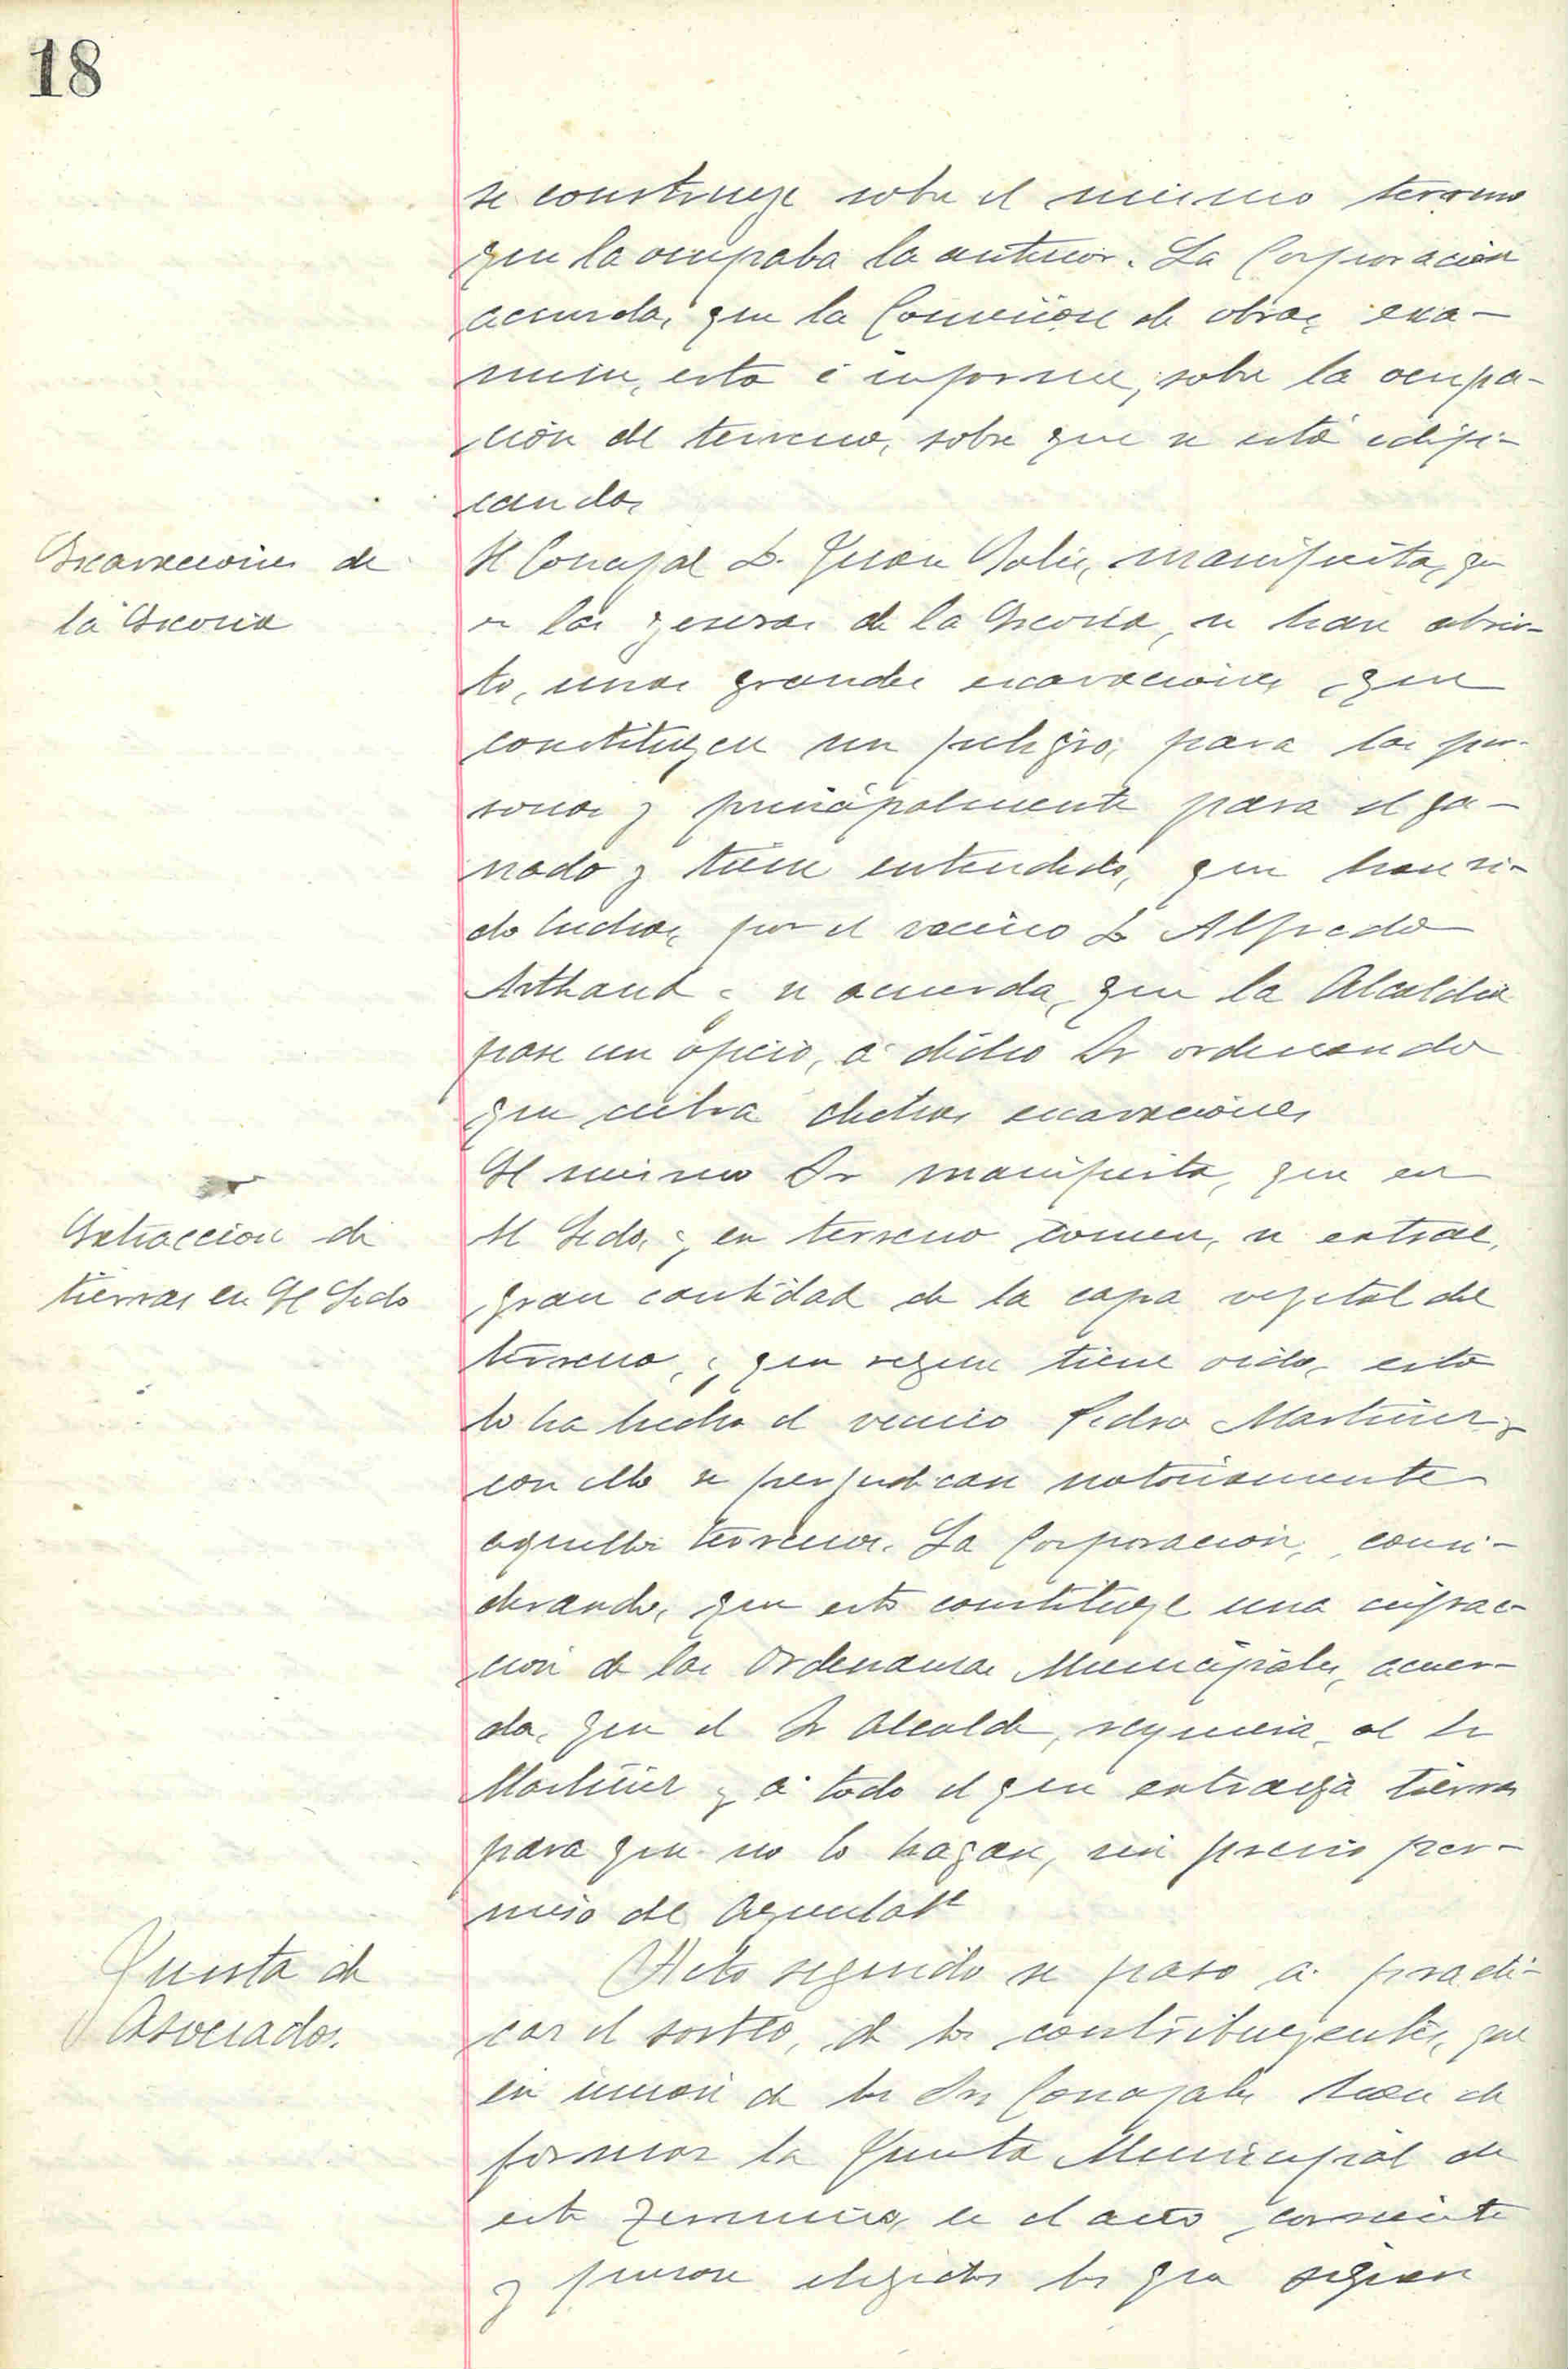 18
se construye sobre el mismo terreno
que la ocupaba la anterior. La Corporación
acuerda, que la Comisión de obras exa-
mine, esta é informe, sobre la ocupa-
ción del terreno, sobre que se está edifi-
cando.
Excavaciones de
la Escoria
El Concejal D. Juan Solis, manifiesta, que
en las yeseras de la Escoria, se han abier-
to, unas grandes excavaciones, que
constituyen un peligro, para las per-
sonas y principalmente para el ga-
nado y tiene entendido, que han si-
do hechas, por el vecino D. Alfredo
Arthaud; se acuerda, que la Alcaldia
pase un oficio, á dicho Sr ordenando
que cubra dichas excavaciones
El mismo Sr manifiesta, que en
Extracción de
tierras en El
El en terreno comun, se extrae,
gran cantidad de la capa vegetal del
terreno, y que segun tiene oido, esto
lo ha hecho el vecino Pedro Martinez y
con ello se perjudican notoriamente
aquellos terrenos. La Corporación, consi-
derando, que esto constituye una infrac-
ción de las Ordenanzas Municipales, acuer-
da, que el Sr Alcalde, requiera, al Sr
Martinez y á todo el que extraiga tierras
para que no lo hagan, sin previo per-
miso del Ayuntate
Junta de
Asociados.
Acto seguido se paso a practi-
car el sorteo, de los contribuyentes, que
en union de los Sres Concejales han de
formar la Junta Municipal de
este Termino, en el año corriente
y fueron elegidos los que siguen